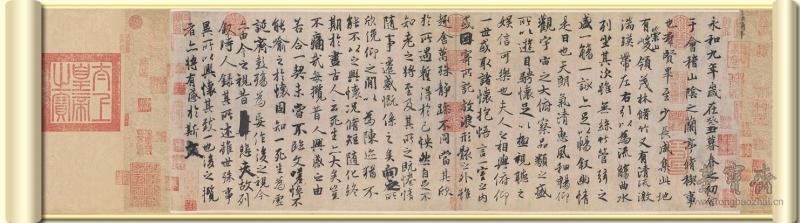 永和九年歲在癸丑暮春之初會
于會稽山陰之蘭亭脩稧事
也群賢畢至少長咸集此地
有崇山峻領茂林脩竹又有清流激
湍暎帶左右引以為流觴曲水
列坐其次雖無絲竹管弦之
盛一觴一詠亦足以暢叙幽情
是日也天朗氣清惠風和暢仰
觀宇宙之大俯察品類之盛
所以遊目騁懷足以極視聽之
娛信可樂也夫人之相與俯仰
一世或取諸懷抱悟言一室之內
或因寄所託放浪形骸之外雖
趣舍萬殊靜躁不同當其欣
於所遇蹔得於己怏然自足不
知老之將至及其所之既惓情
隨事遷感慨係之矣向之所
欣俛仰之閒以為陳迹猶不
能不以之興懷況脩短隨化終
期於盡古人云死生亦大矣豈
不痛哉每攬昔人興感之由
若合一契未嘗不臨文嗟悼不
能喻之於懷固知一死生為虛
誕齊彭殤為妄作後之視今
亦由今之視昔悲夫故列
叙時人錄其所述雖世殊事
異所以興懷其致一也後之攬
者亦將有感於斯文
太上
皇帝
之寶